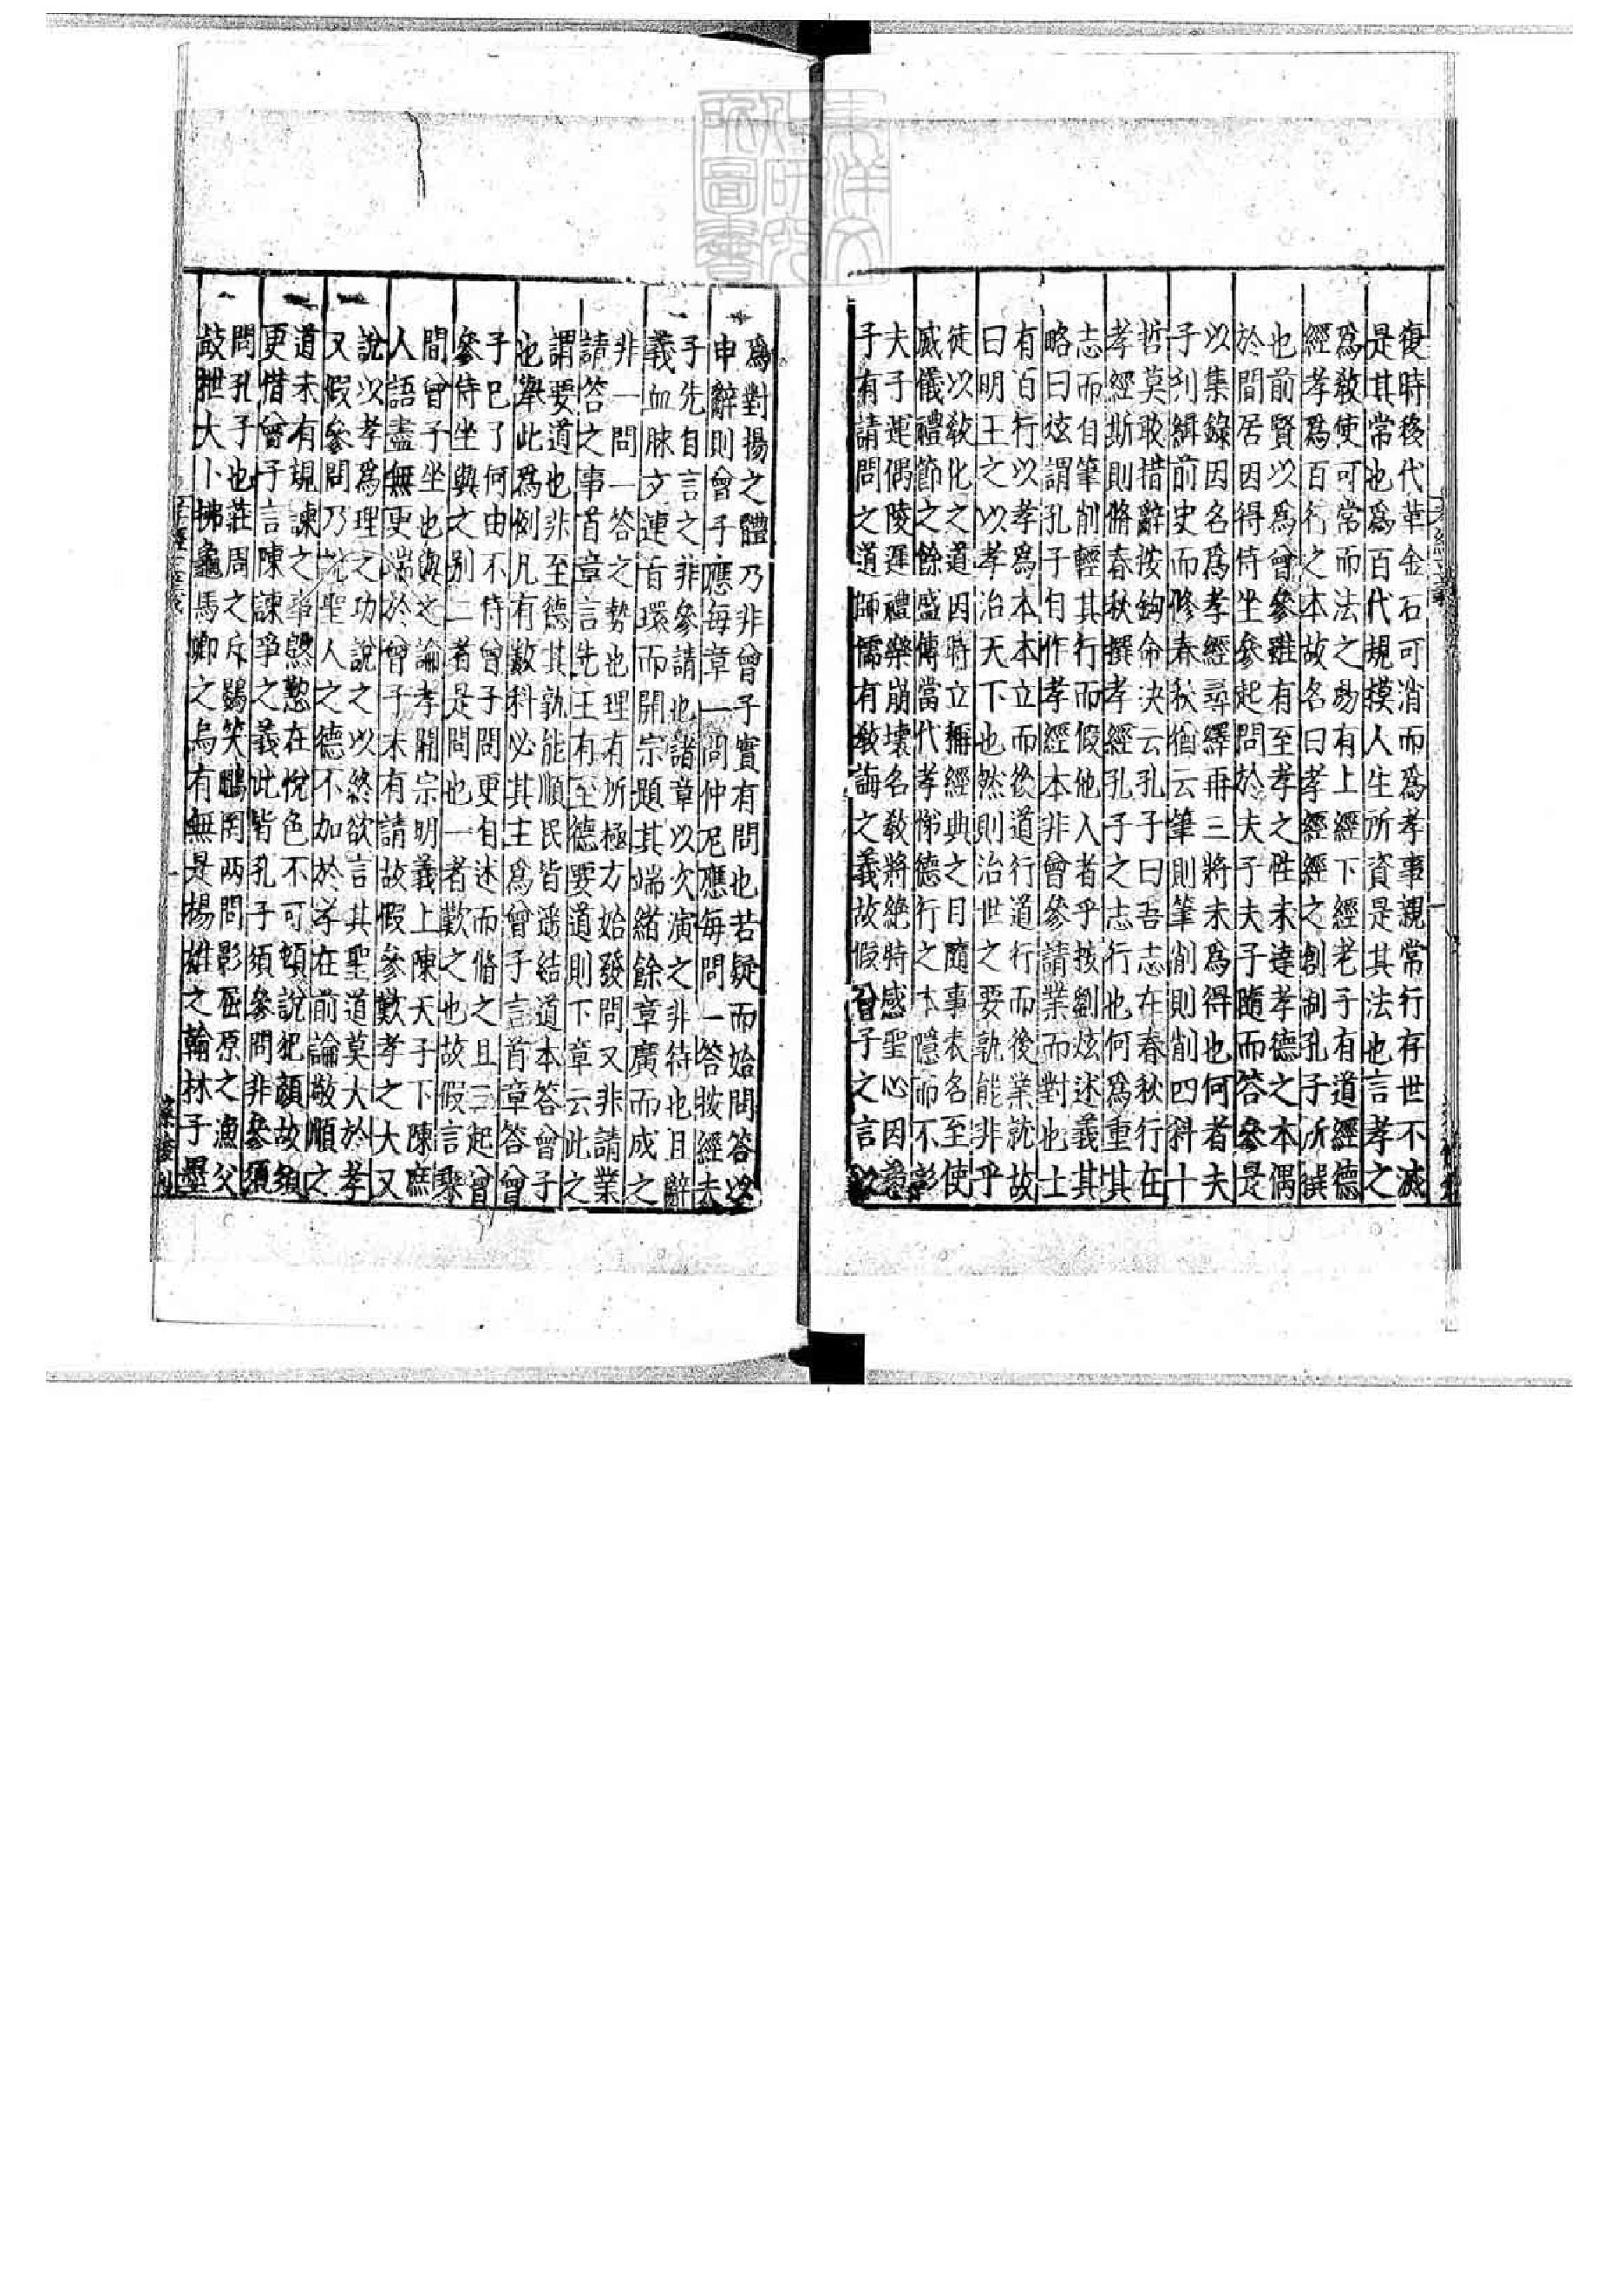 復時移代革金石可消而爲孝事親常行存世不滅
是其常也爲百代規摸人生所資是其法也言孝之
爲教使可常而法之易有上經下經老子有道經德
經孝爲百行之本故名曰孝經經之創制孔子所撰
也前賢以爲曾參雖有至孝之性未達孝德之本偶
於間居因得侍坐參起問於夫子夫子隨而答參是
以集錄因名爲孝經尋繹再三將未爲得也何者夫
子刋緝前史而修春秋猶云筆則筆削則削四科十
哲莫敢措辭按鉤命決云孔子曰吾志在春秋行在
孝經斯則脩春秋撰孝經孔子之志行也何爲重其
志而自筆削輕其行而假他人者乎按劉炫述義其
略曰炫謂孔子自作孝經本非曾參請業而對也士
有百行以孝爲本本立而後道行道行而後業就故
曰明王之以孝治天下也然則治世之要孰能非乎
徒以教化之道因時立稱經典之目隨事表名至使
威儀禮節之餘盛傳當代孝悌德行之本隱而不彰
夫子運偶陵遲禮樂崩壞名教將絶特感聖心因
子有請問之道師儒有教誨之義故假曾子之言以
爲對揚之體乃非曾子實有問也若疑而始問答以
申辭則曾子應每章一問仲尼應每問一答按經夫
子先自言之非參請也諸章以次演之非待也且辭
義血脉文連旨環而開宗題其端緒餘章廣而成之
非一問一答之勢也理有所極方始發問又非請業
請答之事首章言先王有至德要道則下章云此之
謂要道也非至德其孰能順民皆遥結道本答曾子
也舉此爲例凡有數科必其主爲曾子言首章答曾
子已了何由不待曾子問更自述而脩之且三起曾
參侍坐與之别二者是問也一者歎之也故假言乘
間曾子坐也與之論孝開宗明義上陳天子下陳庶
人語盡無更端於曾子未有請故假參歎孝之大又
說以孝爲理之功說之以終欲言其聖道莫大於孝
又假參問乃說聖人之德不加於孝在前論敬順之
道未有規諫之事慇懃在悅色不可頓說犯顔故須
更借曾子言陳諫争之義此皆孔子須參問非參須
問孔子也莊周之斥鷃笑鵬罔兩問影屈原之漁父
鼓枻大卜拂龜馬卿之烏有無是揚雄之翰林子墨